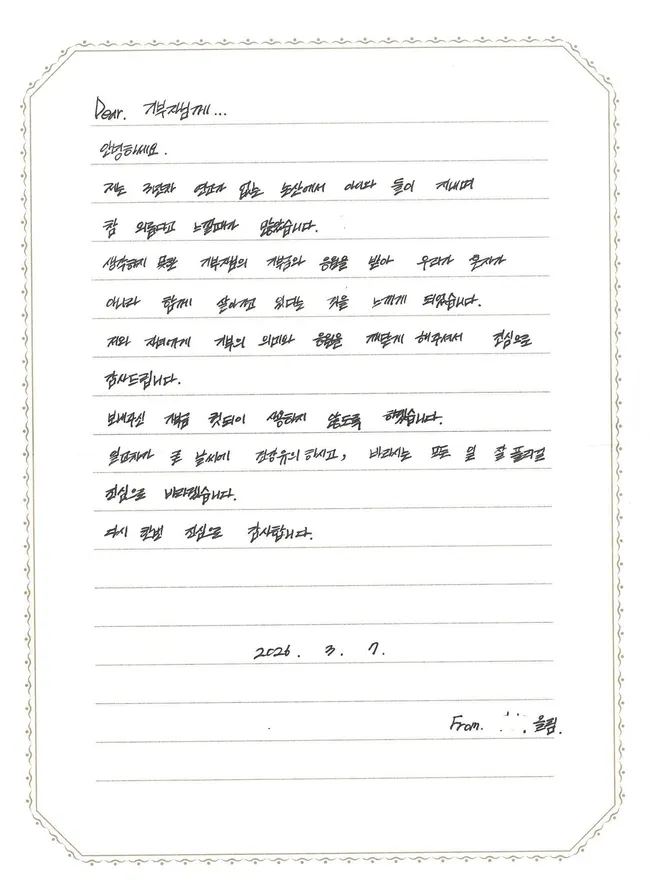 Dear. 기부자님께...
안녕하세요.
저는 친인척 연고가 없는 논산에서 아이와 둘이 지내며
참 외롭다고 느낄때가 많았습니다.
생각하지 못한 기부자님의 기부금과 응원을 받아 우리가 혼자가
아니라 함께 살아가고 있다는 것을 느끼게 되었습니다.
저와 자녀에게 기부의 의미와 응원을 깨닫게 해주셔서 진심으로
감사드립니다.
보내주신 기부금 헛되이 사용하지 않도록 하겠습니다.
일교차가 큰 날씨에 건강유의 하시고, 바라시는 모든 일 잘 풀리길
진심으로 바라겠습니다.
다시 한번 진심으로 감사합니다.
2026. 3. 7.
From. 올림.